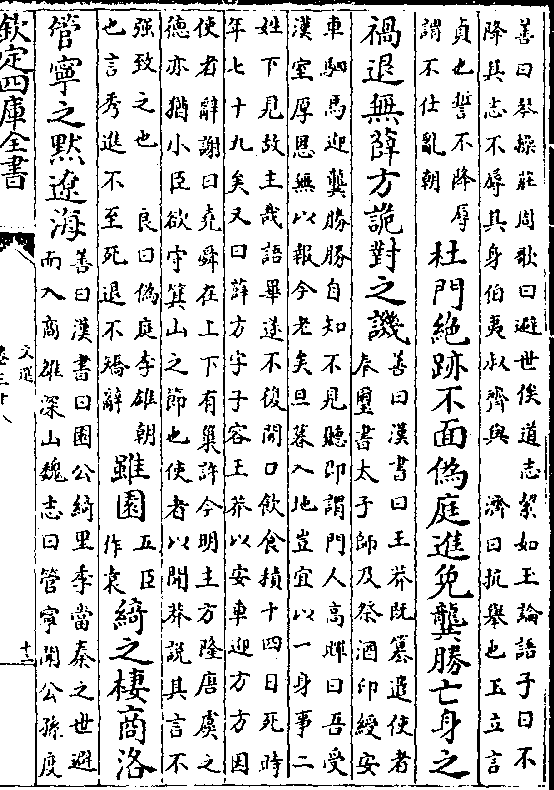 善曰琴操莊周歌曰避世俟道志絜如玉論語子曰不
降其志不辱其身伯夷叔齊與 濟曰抗舉也玉立言
貞也誓不降辱
謂不仕亂朝
杜門絶跡不面偽庭進免龔勝亡身之
禍退無薛方詭對之譏
善曰漢書曰王莽既簒遣使者
奉璽書太子師及祭酒印綬安
車駟馬迎龔勝勝自知不見聽即謂門人高暉曰吾受
漢室厚恩無以報今老矣旦暮入地豈宜以一身事二
姓下見故主哉語畢遂不復開口飲食積十四日死時
年七十九矣又曰薛方字子容王莽以安車迎方方因
使者辭謝曰堯舜在上下有巢許今明主方隆唐虞之
德亦猶小臣欲守箕山之節也使者以聞莽説其言不
强致之也 良曰偽庭李雄朝
也言秀進不至死退不矯辭
雖園
五臣
作袁
綺之棲商洛
管寧之黙遼海
善曰漢書曰園公綺里季當秦之世避
而入商雒深山魏志曰管寧聞公孫度
欽定四庫全書
文選
卷三十八
十二